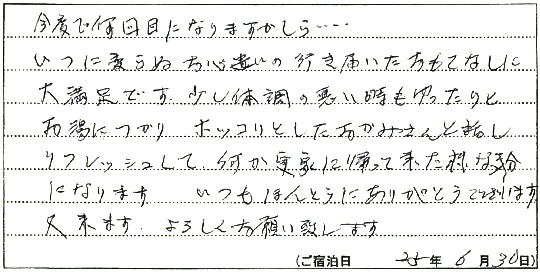 今度で何回目になりますかしら……
いつに変らぬお心遣いの行き届いたおもてなしに
大満足です 少し体調の悪い時もゆったりと
お湯につかり ホッコリとしたおかみさんと話し
リフレッシュして 何か実家に帰って来た様な気分
になります いつもほんとうにありがとうございます
又来ます. よろしくお願い致します
(ご宿泊日 25年6月30日)